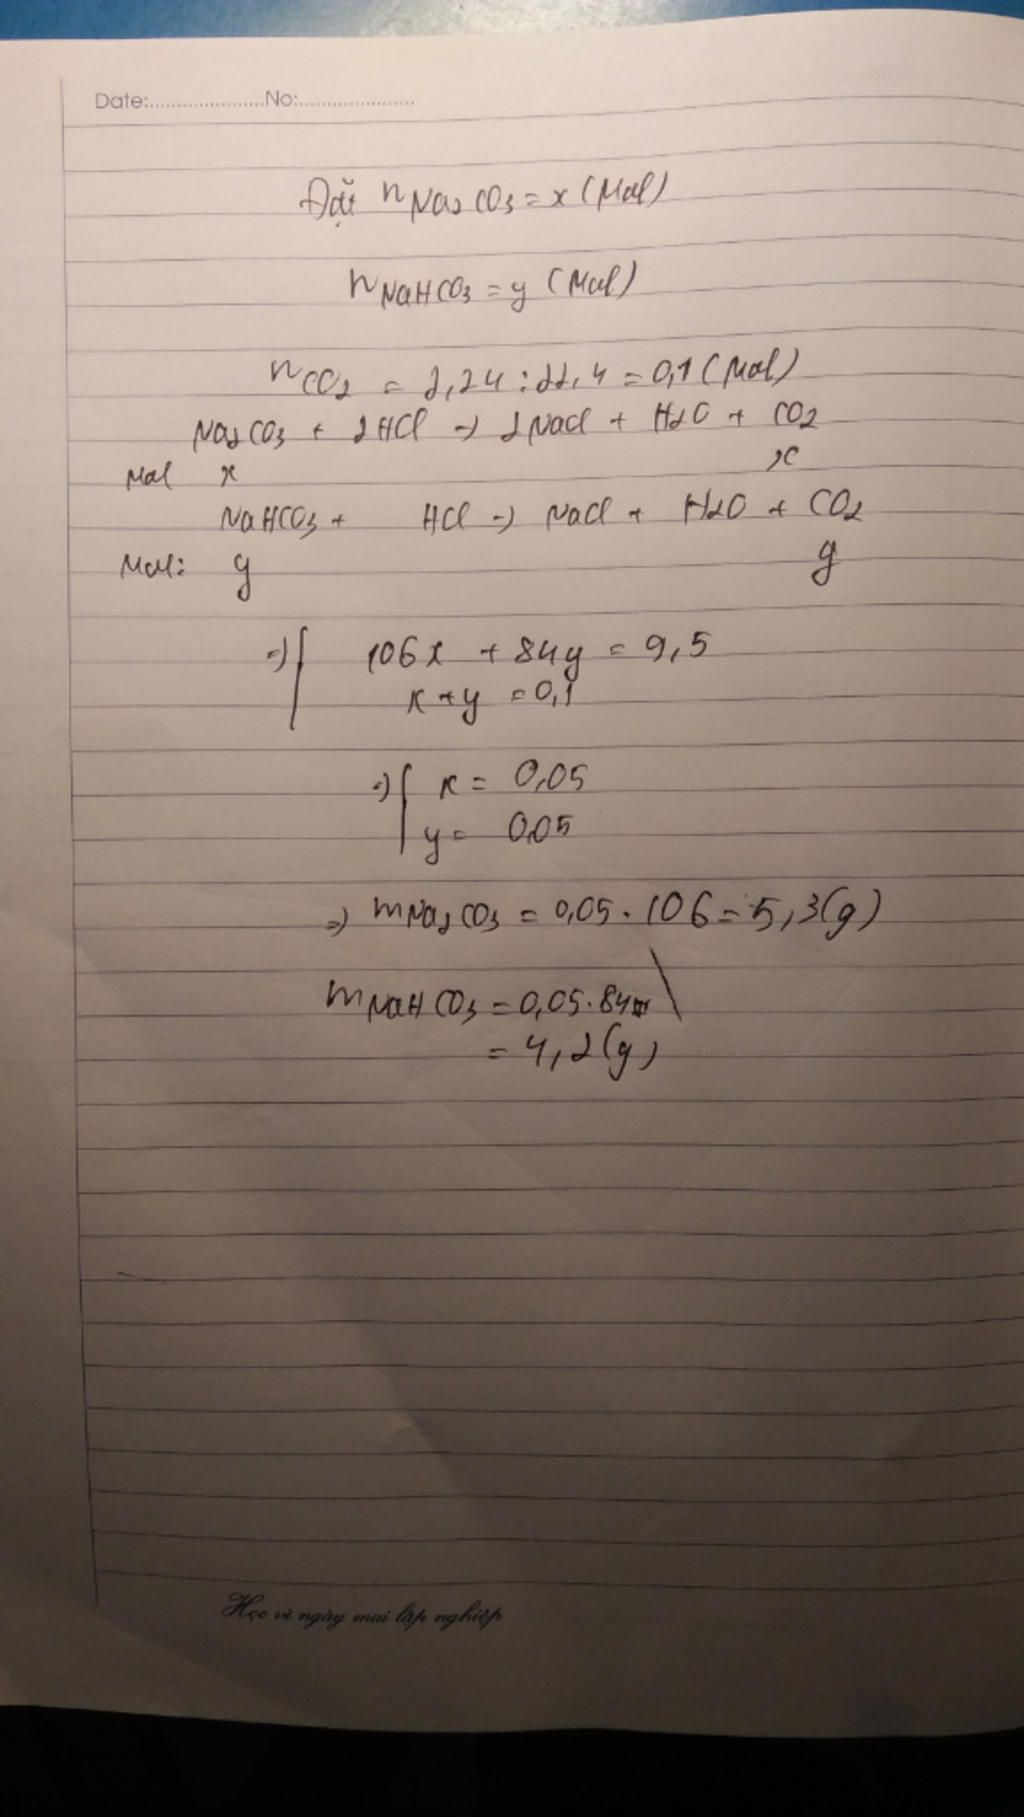 Date:......................No:......................
Đặt nNa2CO3 = x (Mol)
nNaHCO3 = y (Mol)
nCO2 = 2,24 : 22,4 = 0,1 (Mol)
Na2CO3 + 2HCl -> 2NaCl + H2O + CO2
Mol x x
NaHCO3 + HCl -> NaCl + H2O + CO2
Mol: y y
=> 106x + 84y = 9,5
x + y = 0,1
=> x = 0,05
y = 0,05
=> mNa2CO3 = 0,05 . 106 = 5,3 (g)
mNaHCO3 = 0,05 . 84
= 4,2 (g)
Học vì ngày mai lập nghiệp